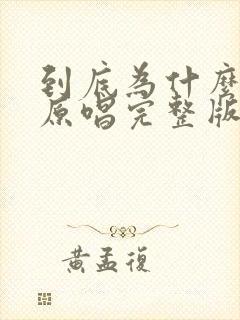 到底為什麼
原唱完整版
黃孟復